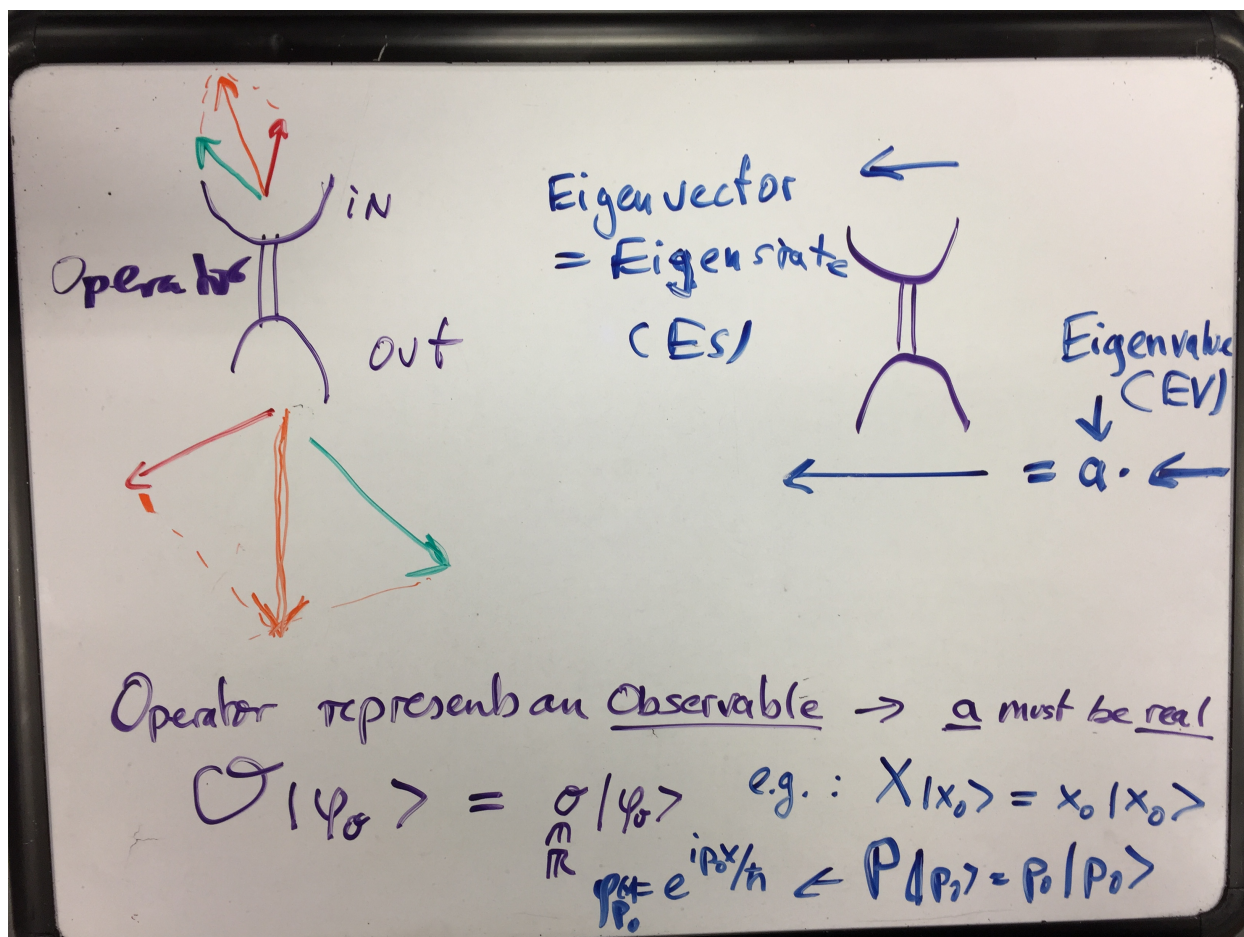 iN
Operator
out
Eigenvector
= Eigenstate
(ES)
Eigenvalue
(EV)
= a·
Operator represents an Observable → a must be real
O|φσ> = σ|φσ>
∈
ℝ
e.g.: X|x₀> = x₀|x₀>
φp₀(x) = e^(ip₀x/ħ) ← P|p₀> = p₀|p₀>